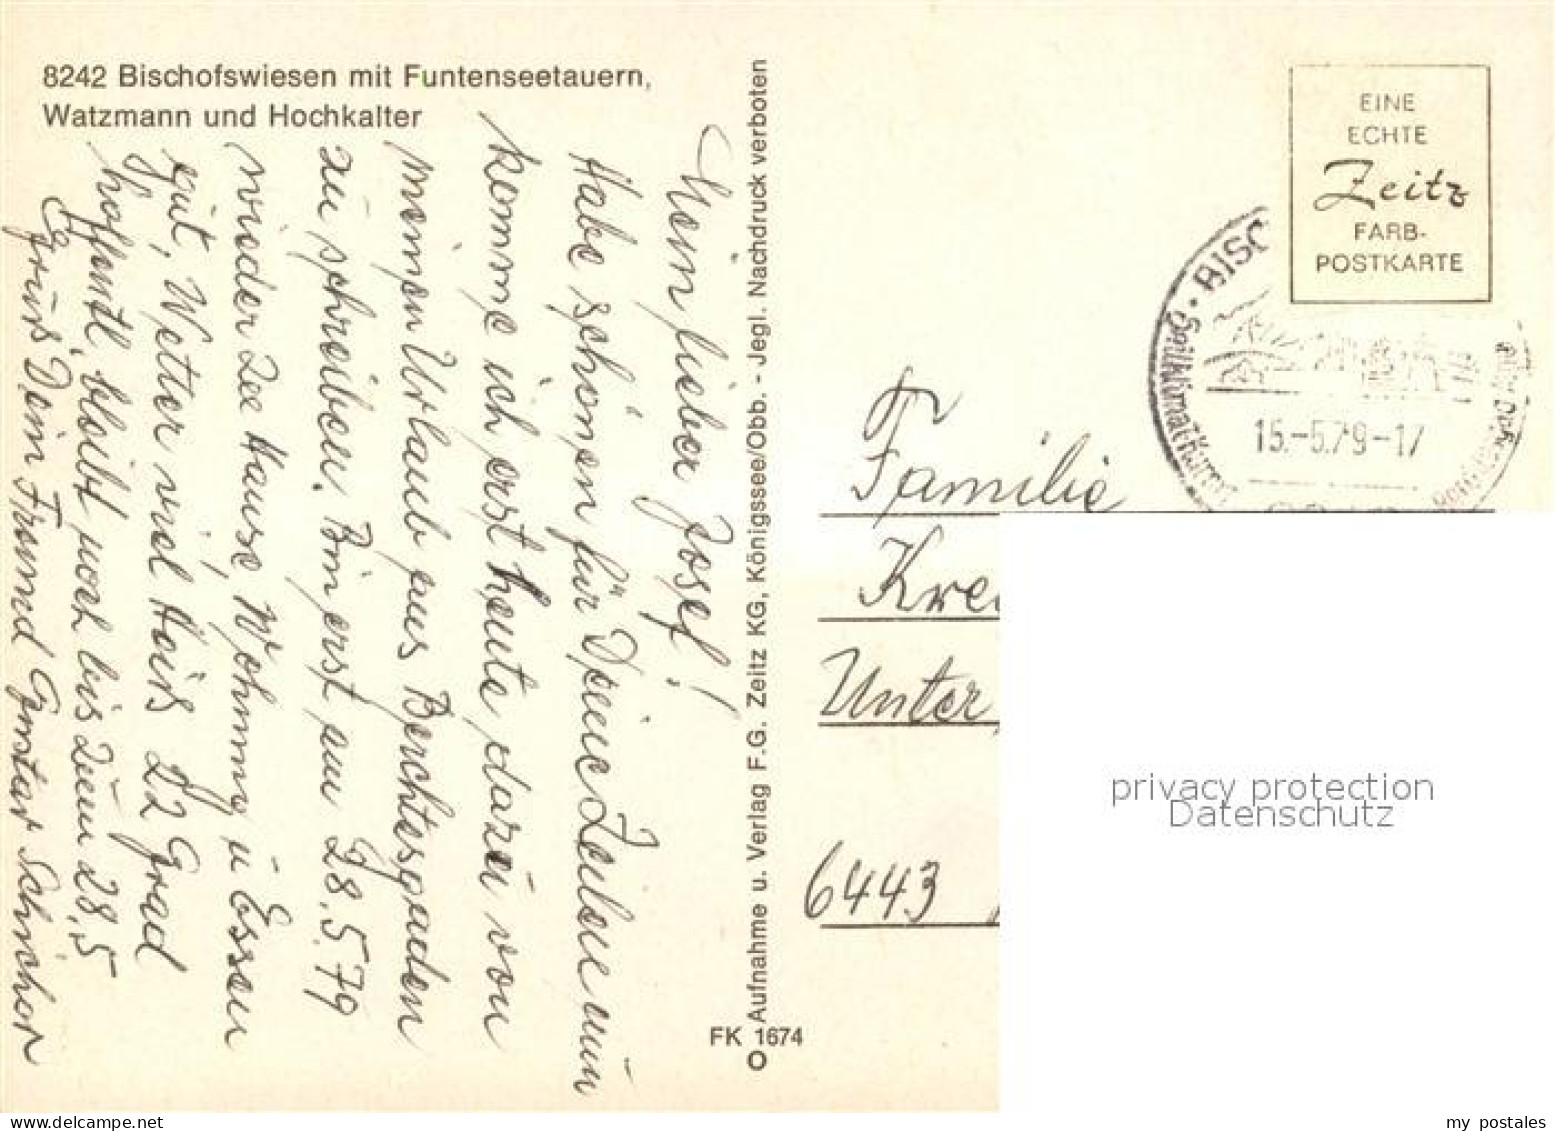 8242 Bischofswiesen mit Funtenseetauern,
Watzmann und Hochkalter
Mein lieber Josef!
Habe schönen für Deine Zeilen nun
komme ich erst heute dazu von
meinen Urlaub aus Berchtesgaden
zu schreiben. Bin erst am 28.5.79
wieder zu Hause, Wohnung u Essen
gut, Wetter viel heiß 22 Grad
hoffentl. bleibt noch bis zum 28.5
Es grüßt Dein Freund Gustav
Aufnahme u. Verlag F.G. Zeitz KG, Königssee/Obb. - Jegl. Nachdruck verboten
FK 1674
EINE
ECHTE
Zeitz
FARB-
POSTKARTE
BISC
Heilklimat. Kuror
15.-5.79-17
Familie
Kre
Unter
6443
privacy protection
Datenschutz
my postales